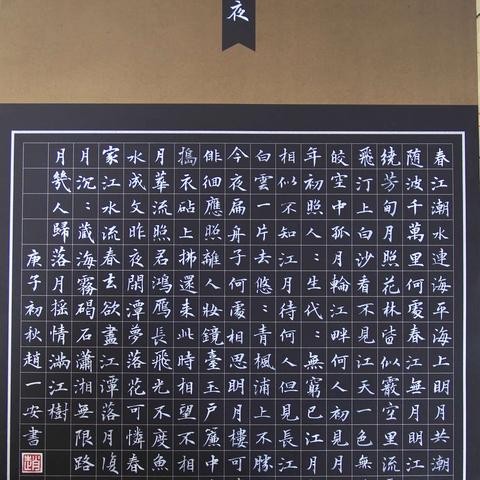 夜
春江潮水連海平海上明月共潮
随波千萬里何處春江無月明江
繞芳甸月照花林皆似霰空里流
飛汀上白沙看不見江天一色無
皎空中孤月輪江畔何人初見月
年初照人:生代:無窮已江月
相似不知江月待何人但見長江
白雲一片去悠:青楓浦上不勝
今夜扁舟子何處相思明月樓可
俳徊應照離人妝鏡臺玉戶簾中
搗衣砧上拂還来此時相望不相
月華流照君鴻雁長飛光不度魚
水成文昨夜閑潭夢落花可憐春
家江水流春去欲盡江潭落月復
月沉:藏海霧碣石瀟湘無限路
月幾人歸落月摇情滿江樹
庚子初秋趙一安書